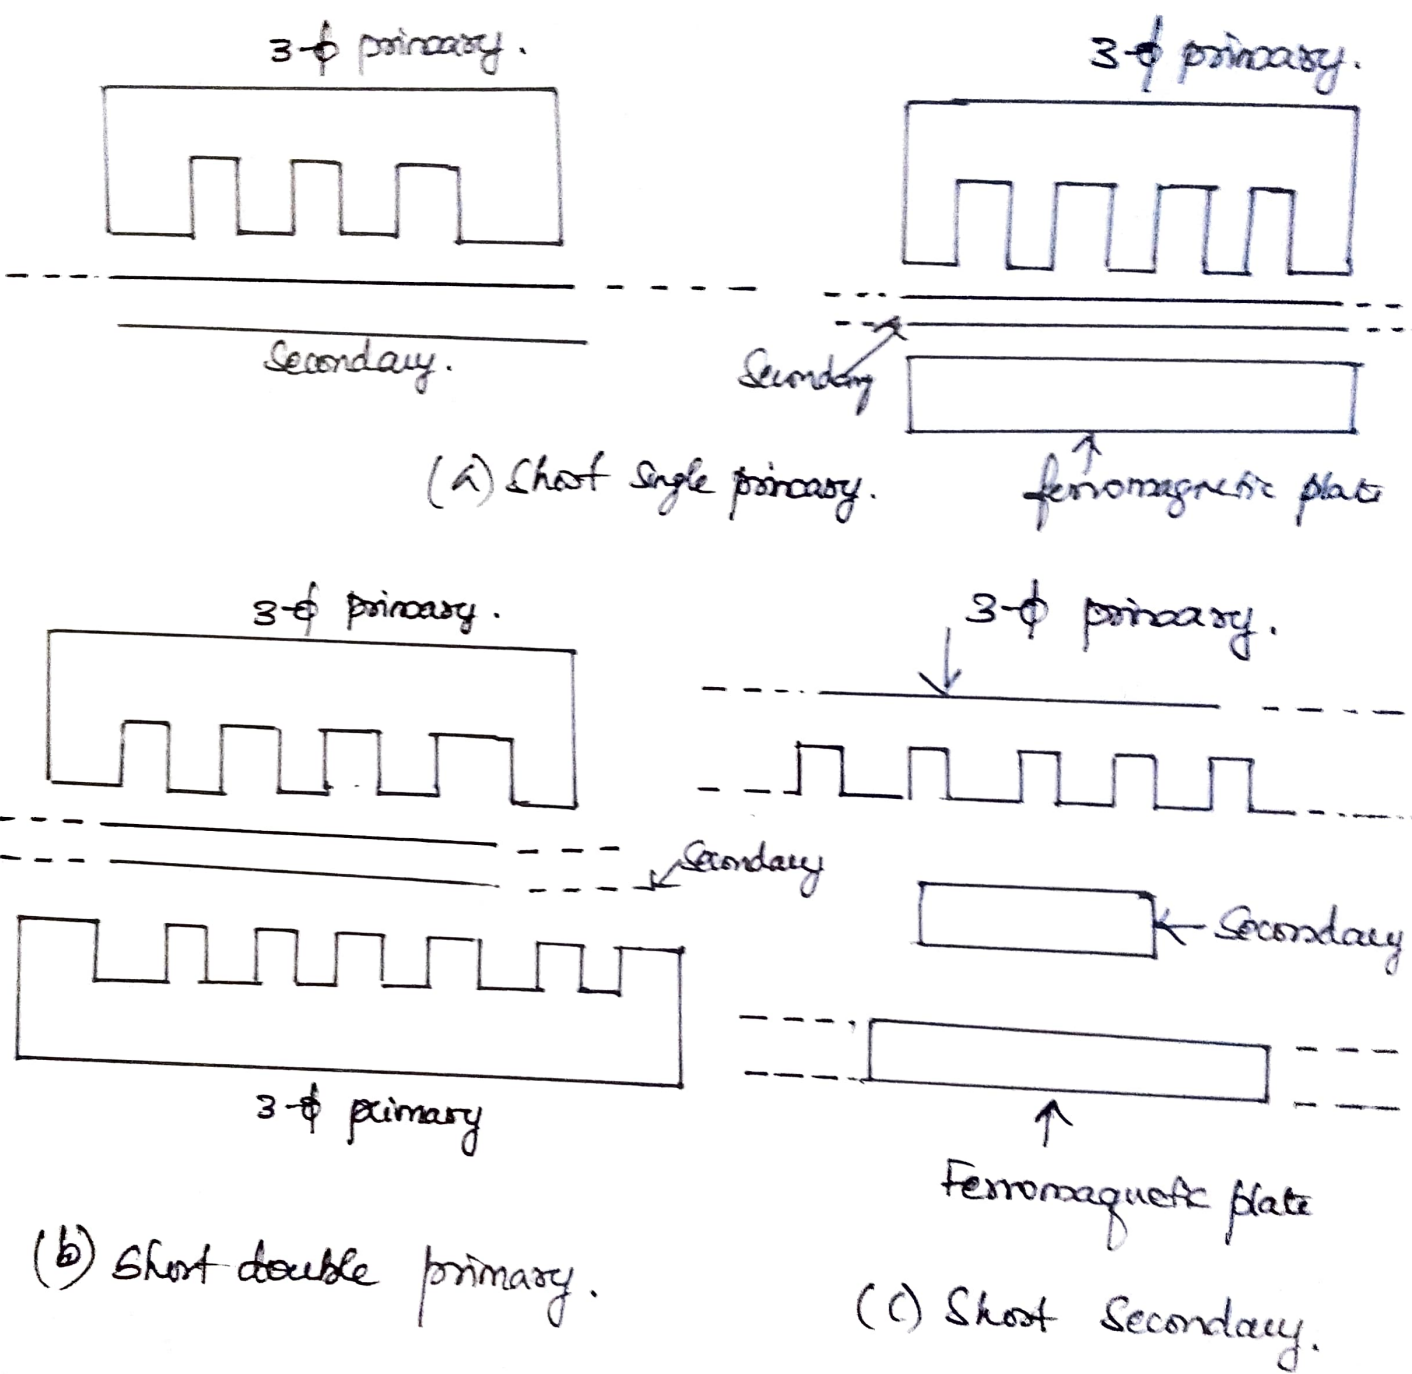 3-ϕ primary.
3-ϕ primary.
Secondary.
Secondary
(a) Short Single primary.
ferromagnetic plate
3-ϕ primary.
3-ϕ primary.
Secondary
Secondary
3-ϕ primary
Ferromagnetic plate
(b) Short double primary.
(C) Short Secondary.